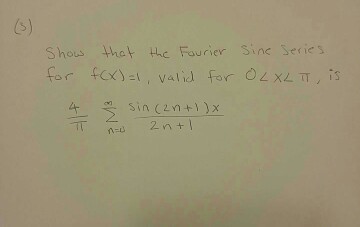 (5)
Show that the Fourier Sine Series
for f(x)=1, valid for 0<x<π, is
4/π ∞∑n=0 sin(2n+1)x / 2n+1